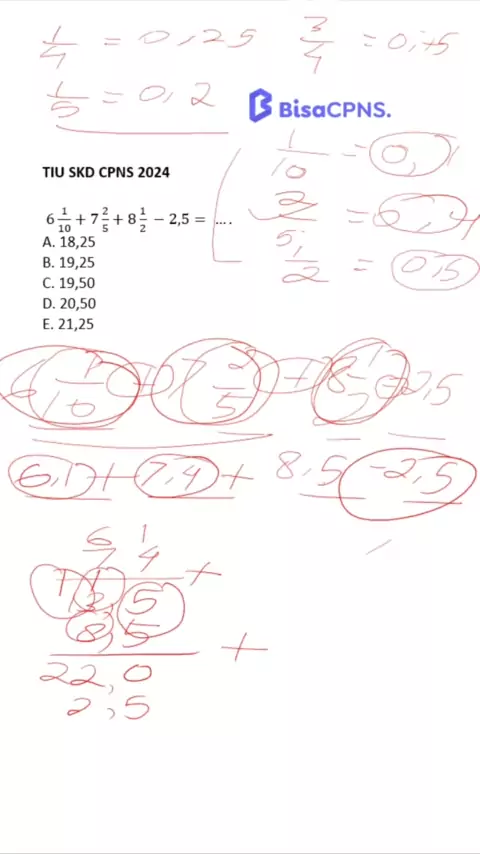 1/4 = 0,25
3/4 =
1/5 = 0,2
BisaCPNS.
1/10 =
TIU SKD CPNS 2024
6 1/10 + 7 2/5 + 8 1/2 − 2,5 = ....
2/5 = 0,4
A. 18,25
B. 19,25
1/2 = 0,5
C. 19,50
D. 20,50
E. 21,25
6 1/10 + 7 2/5 + 8 1/2 - 2,5
6,1 + 7,4 + 8,5 - 2,5
6 1
7 4 +
13,5
8,5 +
22,0
2,5